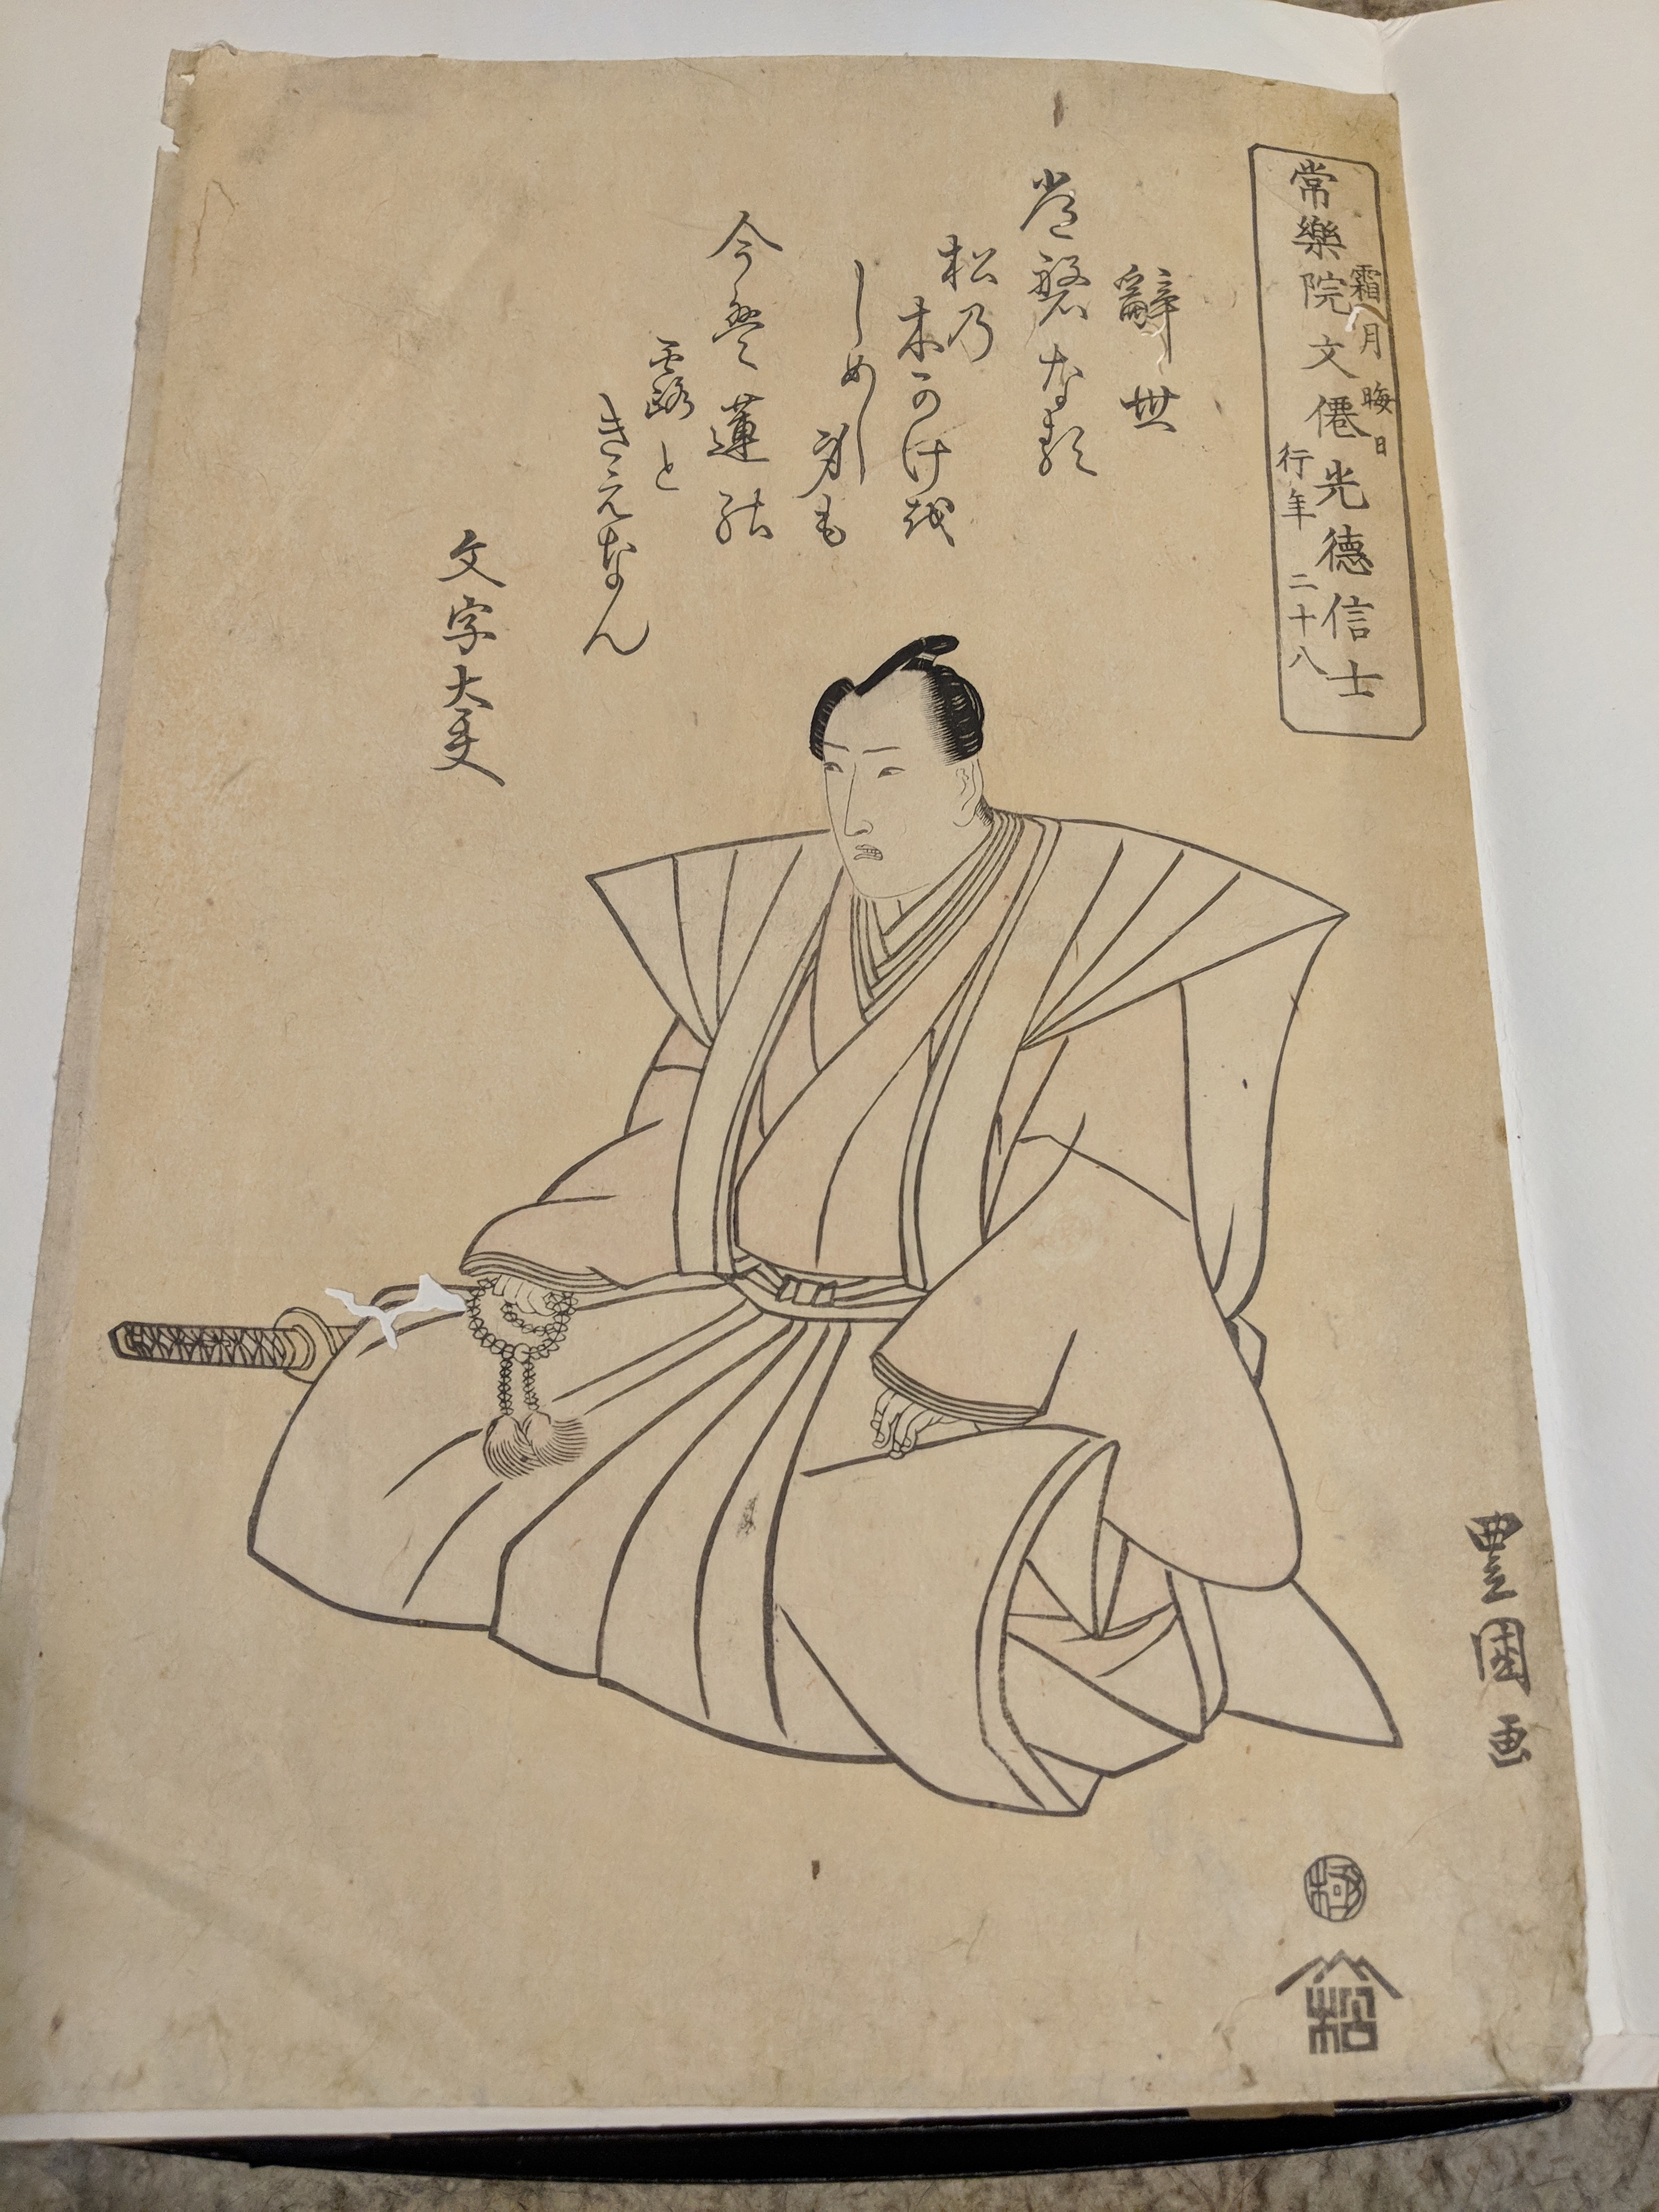 霜月晦日
常樂院文僊光徳信士
行年二十八
辭世
常磐なる
松乃
木かけ越
しめし
身も
今盤蓮の
露と
きえなん
文字大夫
豊國画
極
松